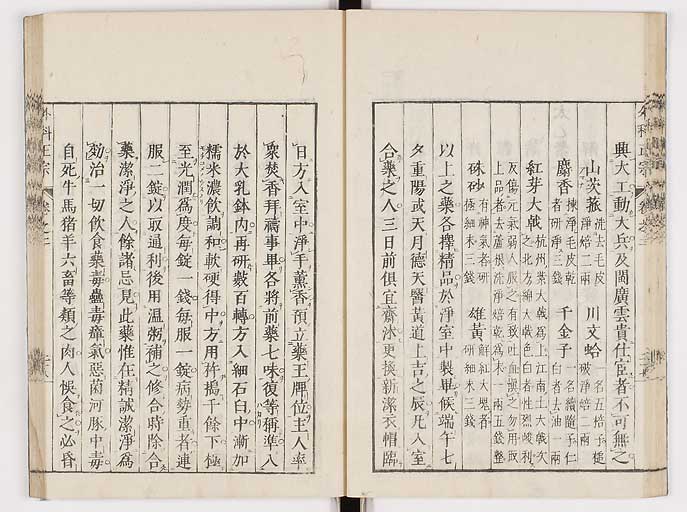 外科正宗 卷之二
興大工動大兵及閩廣雲貴仕宦者不可無之
山茨菰 洗去毛皮淨焙二兩 川文蛤 一名五棓子槌破淨焙二兩
麝香 揀淨毛皮乾者研淨三錢 千金子 一名續隨子仁白者去油一兩
紅芽大戟 杭州紫大戟為上江南土大戟次之北方綿大戟色白者性烈峻利
反傷元氣弱人服之有致吐血慎之勿用取上品者去蘆根洗淨焙乾為末一兩五錢整
硃砂 有神氣者研極細末三錢 雄黃 鮮紅大塊者研細末三錢
以上之藥各擇精品於淨室中製畢候端午七
夕重陽或天月德天醫黃道上吉之辰凡入室
合藥之人三日前俱宜齋沐更換新潔衣帽臨
日方入室中淨手薰香預立藥王牌位主人率
衆焚香拜禱事畢各將前藥七味復等稱準入
於大乳鉢內再研數百轉方入細石臼中漸加
糯米濃飲調和軟硬得中方用杵擣千餘下極
至光潤為度每錠一錢每服一錠病勢重者連
服二錠以取通利後用溫粥補之修合時除合
藥潔淨之人餘諸忌見此藥惟在精誠潔淨為
効治一切飲食藥毒蠱毒瘴氣惡菌河豚中毒
自死牛馬猪羊六畜等類之肉人悞食之必昏
外科正宗 卷之二